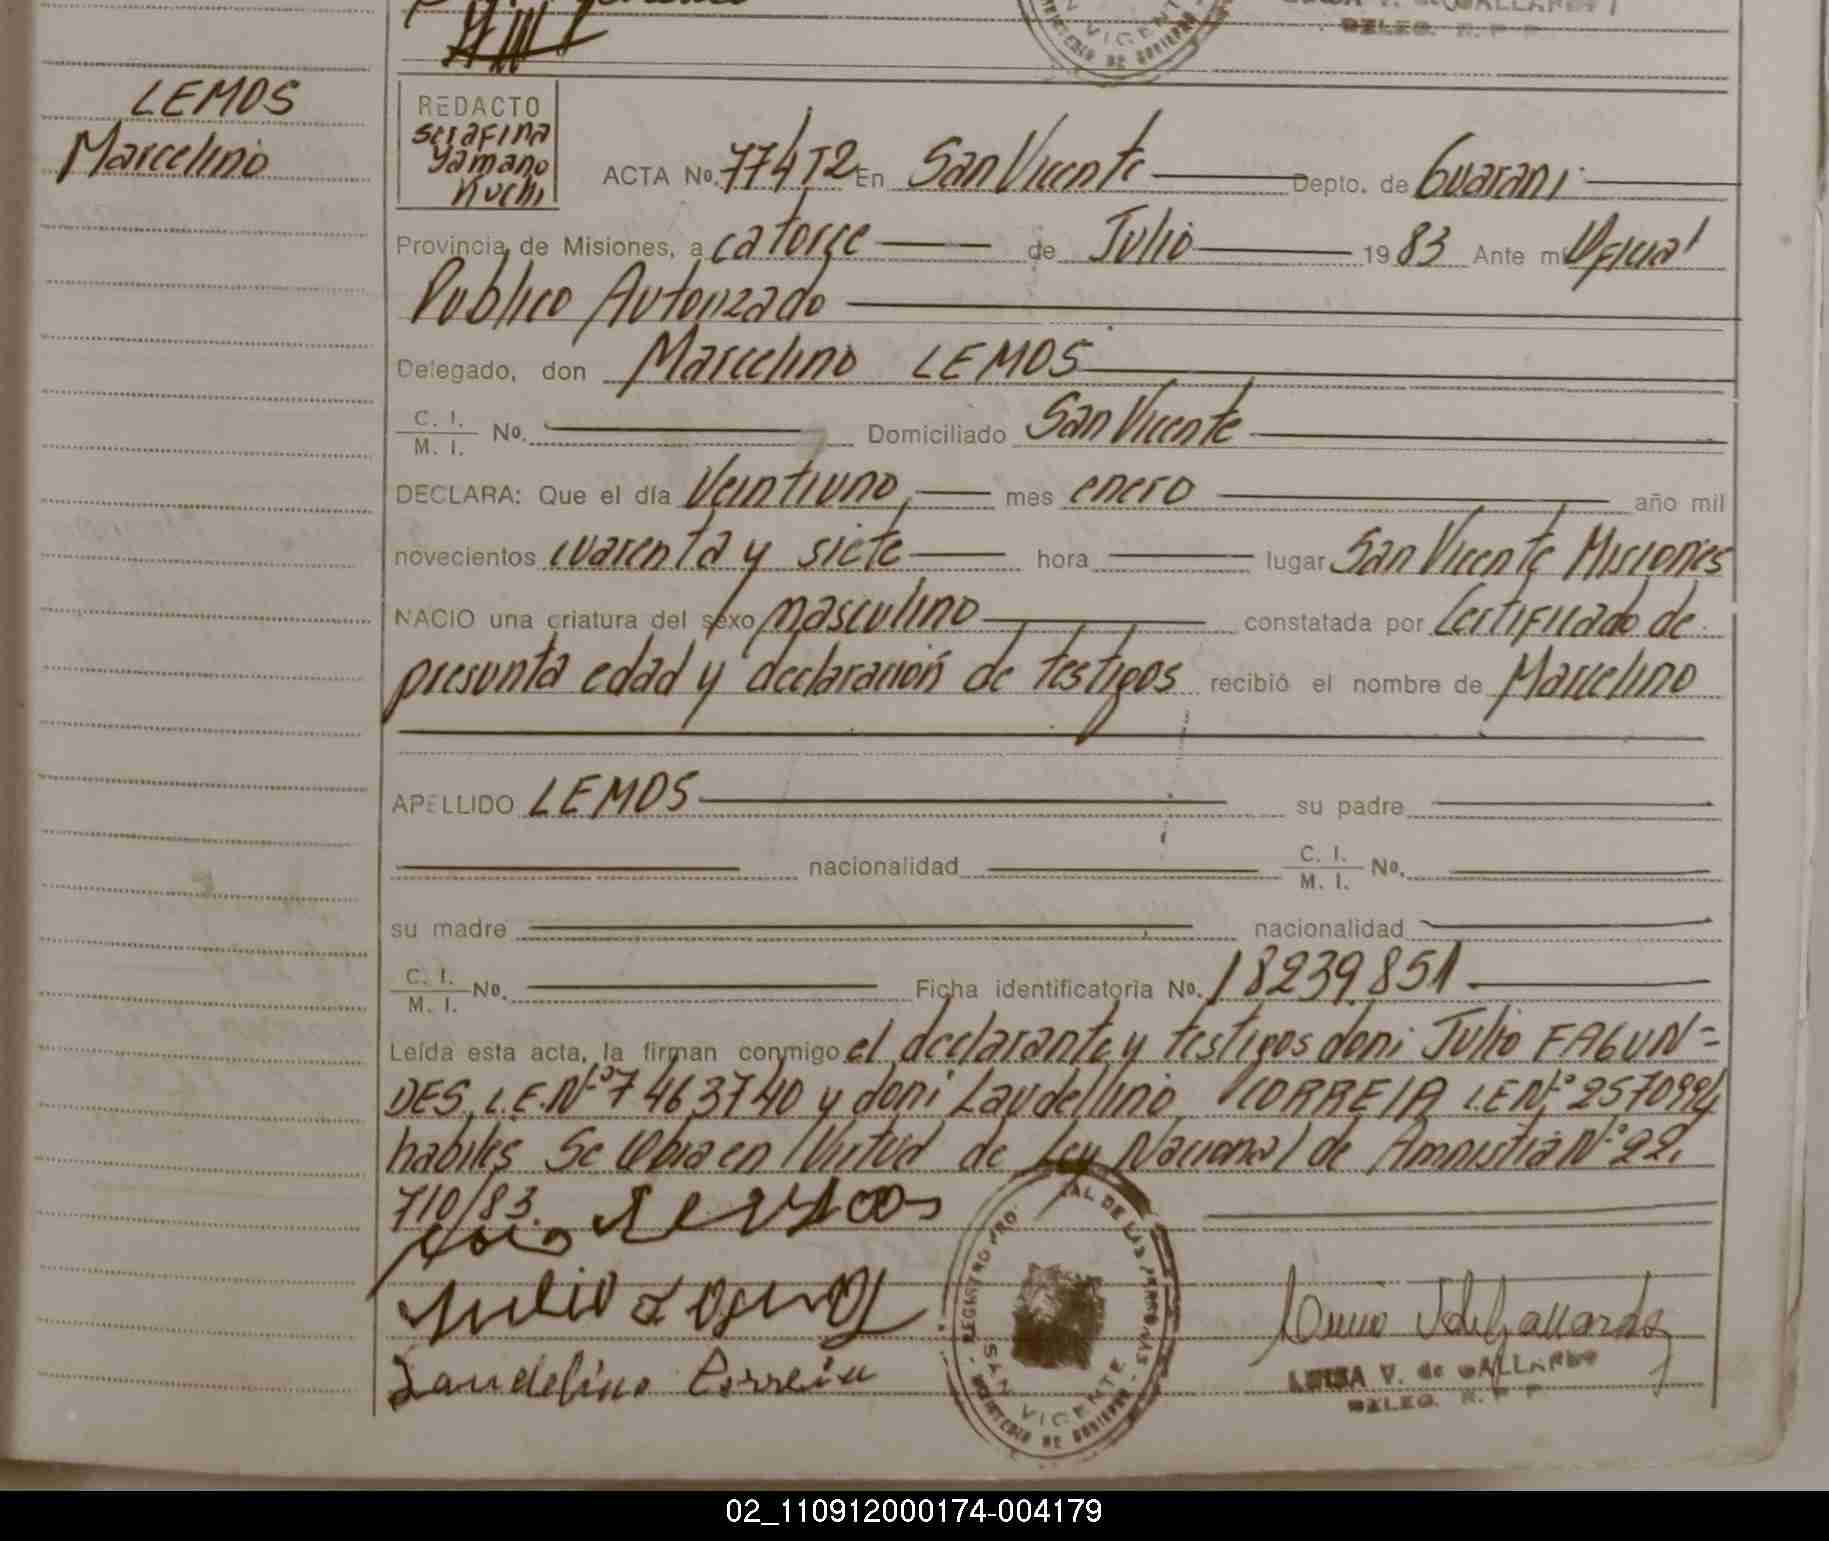 LUISA V. de GALLARDO
DELEG. R. P. P.
LEMOS
Marcelino
REDACTO
Serafina
Yamano
Kuchi
ACTA No. 77 4 T2 En San Vicente Depto. de Guarani
Provincia de Misiones, a catorce de Julio 1983 Ante mi Oficial
Publico Autorizado
Delegado, don Marcelino LEMOS
C. I. / M. I. No. Domiciliado San Vicente
DECLARA: Que el día Veintiuno mes enero año mil
novecientos cuarenta y siete hora lugar San Vicente Misiones
NACIO una criatura del sexo masculino constatada por Certificado de
presunta edad y declaración de testigos recibió el nombre de Marcelino
APELLIDO LEMOS su padre
nacionalidad C. I. / M. I. No.
su madre nacionalidad
C. I. / M. I. No. Ficha identificatoria No. 18239.851
Leída esta acta, la firman conmigo el declarante y testigos don: Julio FAGUN=
DES, L.E.Nº 7463740 y don: Laudellino CORREIA L.E.Nº 2570994
habiles Se Obra en Virtud de Ley Nacional de Amnistia Nº 22.
710/83.
Julio
Laudelino Correia
REGISTRO PRO AL DE LAS PERSONAS
SAN VICENTE
MINISTERIO DE GOBIERNO
LUISA V. de GALLARDO
DELEG. R. P. P.
02_110912000174-004179